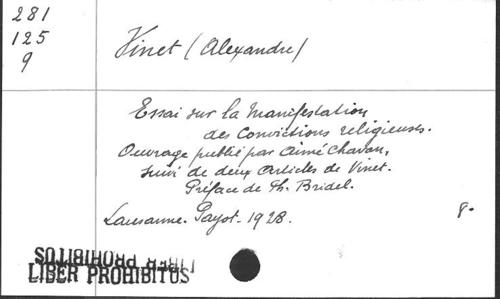 281
125
9
Vinet (Alexandre)
Essai sur la Manifestation
des Convictions religieuses.
Ouvrage publié par Aimé Chavan,
suivi de deux Articles de Vinet.
Préface de Ph. Bridel.
Lausanne. Payot. 1928. 8.
LIBER PROHIBITUS
LIBER PROHIBITUS